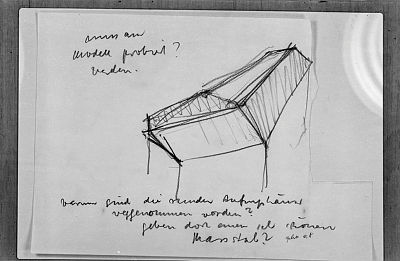 muss am
modell probiert?
werden.
warum sind die runden Aufzugstürme
weggenommen worden?
geben doch einen sch schönen
Massstab?